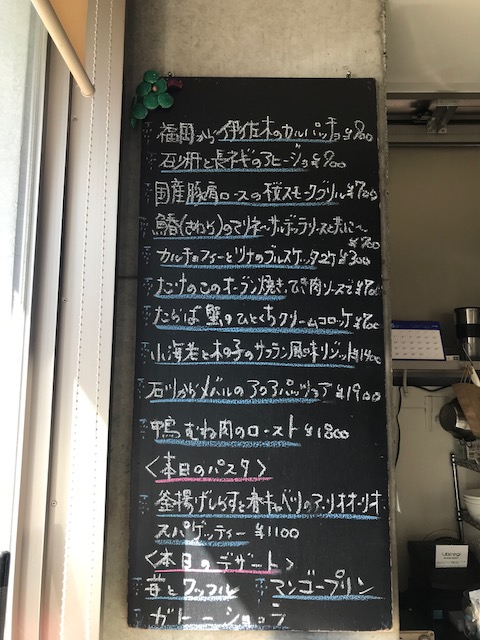 福岡から伊佐木のカルパッチョ ¥800
石川 と長ネギのアヒージョ ¥800
国産豚肩ロースの桜スモークグリル ¥700
鰆(さわら)のマリネ〜サルサヴェルデソースと共に〜
¥700
カルチョーフィーとツナのブルスケッタ2ケ ¥300
たけのこのオーブン焼き、ひき肉ソースで ¥700
たらば蟹のひとくちクリームコロッケ ¥700
小海老と木の子のサフラン風味リゾット ¥1400
石川からメバルのアクアパッツァ ¥1900
鴨むね肉のロースト ¥1800
〈本日のパスタ〉
釜揚げしらすと春キャベツのアーリオオーリオ
スパゲッティー ¥1100
〈本日のデザート〉
苺とワッフル マンゴープリン
ガトーショコラ